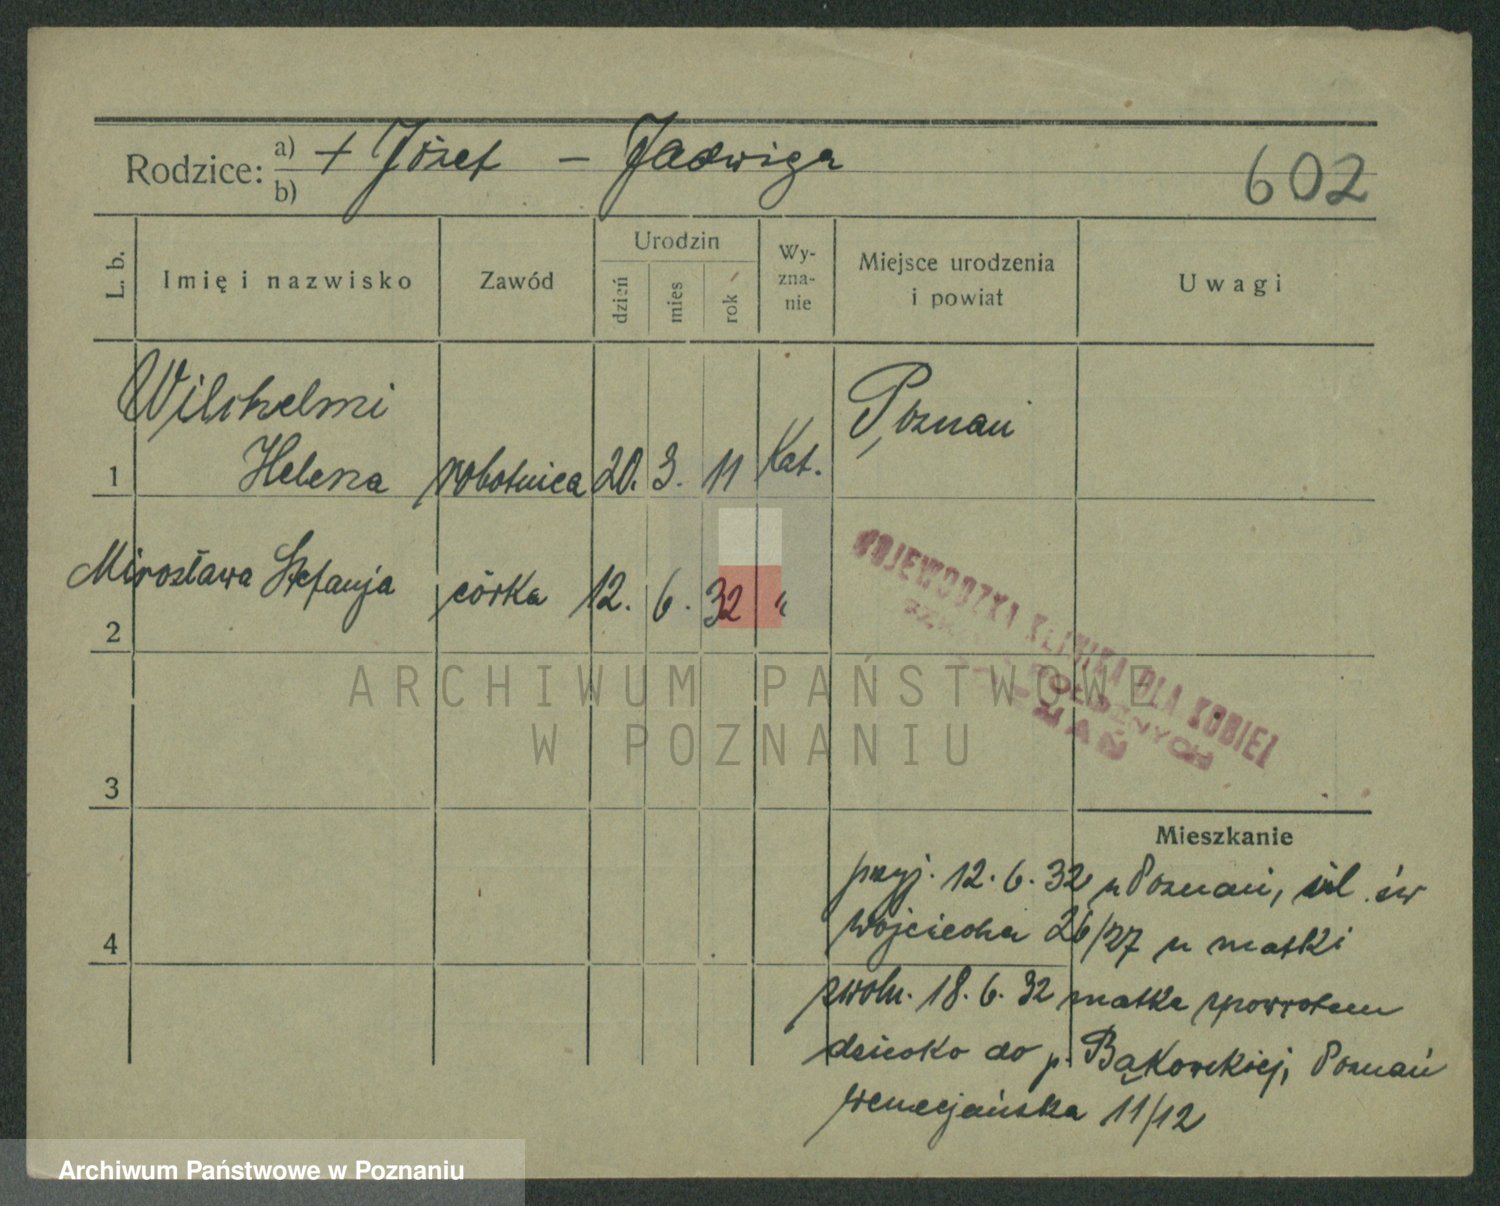 Rodzice: a) + Józef – Jadwiga
b)
602
L. b.
Imię i nazwisko
Zawód
Urodzin
dzień
mies
rok
Wy-
zna-
nie
Miejsce urodzenia
i powiat
Uwagi
Wilchelmi
1 Helena robotnica 20. 3. 11 Kat. Poznań
Mirosława Stefanja córka 12. 6. 32 "
2
WOJEWÓDZKA KLINIKA DLA KOBIET
POŁOŻNYCH
ARCHIWUM PAŃSTWOWE
W POZNANIU
3
Mieszkanie
przyj. 12. 6. 32 z Poznań, ul. św
4 Wojciecha 26/27 u matki
zwoln. 18. 6. 32 matka zpowrotem
dziecko do p. Bąkowskiej, Poznań
Wenecjańska 11/12
Archiwum Państwowe w Poznaniu